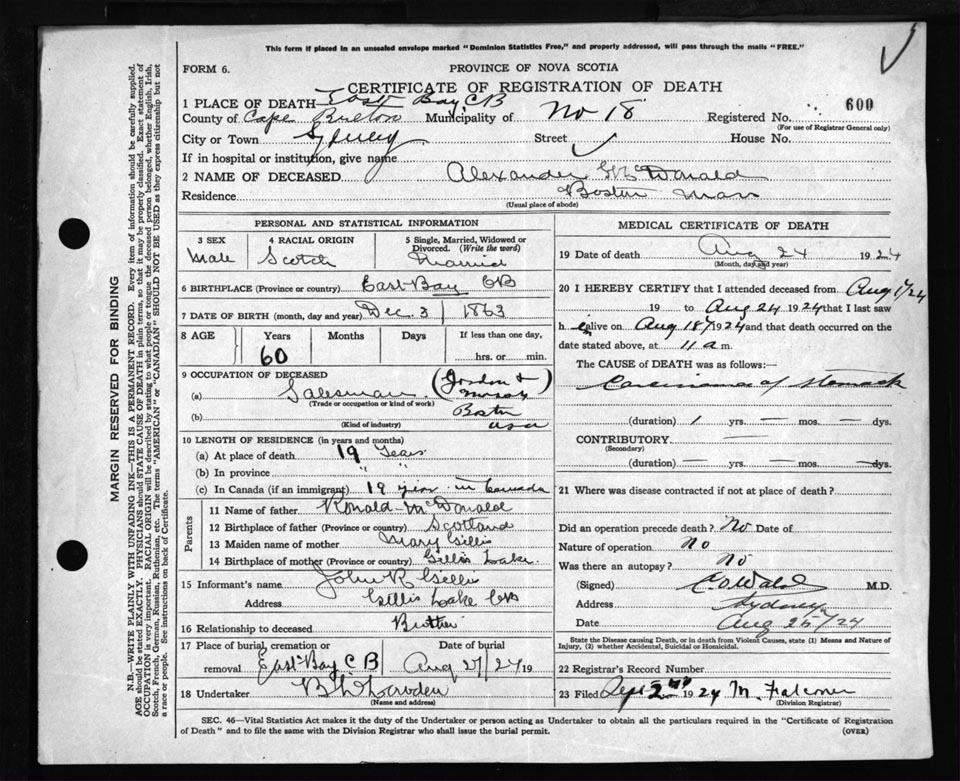 This form if placed in an unsealed envelope marked "Dominion Statistics Free," and properly addressed, will pass through the mails "FREE."
FORM 6.
PROVINCE OF NOVA SCOTIA
CERTIFICATE OF REGISTRATION OF DEATH
600
1 PLACE OF DEATH East Bay, CB
County of Cape Breton Municipality of No 18 Registered No.
(For use of Registrar General only)
City or Town Sydney Street House No.
If in hospital or institution, give name
2 NAME OF DECEASED Alexander McDonald
Residence Boston Mass
(Usual place of abode)
MARGIN RESERVED FOR BINDING
N.B.—WRITE PLAINLY WITH UNFADING INK—THIS IS A PERMANENT RECORD. Every item of information should be carefully supplied.
AGE should be stated EXACTLY. PHYSICIANS should STATE CAUSE OF DEATH in plain terms, so that it may be properly classified. Exact statement of
OCCUPATION is very important. RACIAL ORIGIN will be described by stating to what people or tongue the deceased person belonged, whether English, Irish,
Scotch, French, German, Russian, Ruthenian, etc. The terms "AMERICAN" or "CANADIAN" SHOULD NOT BE USED as they express citizenship but not
a race or people. See instructions on back of Certificate.
PERSONAL AND STATISTICAL INFORMATION
3 SEX
Male
4 RACIAL ORIGIN
Scotch
5 Single, Married, Widowed or
Divorced. (Write the word)
Married
6 BIRTHPLACE (Province or country) East Bay CB
7 DATE OF BIRTH (month, day and year) Dec. 3 1863
8 AGE Years Months Days If less than one day,
60 hrs. or min.
9 OCCUPATION OF DECEASED
(a) Salesman
(Trade or occupation or kind of work)
(b) Boston
USA
(Kind of industry)
10 LENGTH OF RESIDENCE (in years and months)
(a) At place of death 19 Years
(b) In province " "
(c) In Canada (if an immigrant) 19 in Canada
Parents
11 Name of father Ronald McDonald
12 Birthplace of father (Province or country) Scotland
13 Maiden name of mother Mary Gillis
14 Birthplace of mother (Province or country) Gillis Lake.
15 Informant's name John R Gillis
Address Gillis Lake CB
16 Relationship to deceased Brother
17 Place of burial, cremation or Date of burial
removal East Bay CB Aug 27/24 19
18 Undertaker
(Name and address)
MEDICAL CERTIFICATE OF DEATH
19 Date of death Aug 24 1924
(Month, day and year)
20 I HEREBY CERTIFY that I attended deceased from Aug 1/24
19 to Aug 24 1924 that I last saw
h alive on Aug 18 1924 and that death occurred on
date stated above, at 11 a m.
The CAUSE OF DEATH was as follows:—
Carcinoma of stomach
(duration) 1 yrs. — mos. — dys.
CONTRIBUTORY —
(Secondary)
(duration) — yrs. — mos. — dys.
21 Where was disease contracted if not at place of death?
Did an operation precede death? No Date of
Nature of operation no
Was there an autopsy? No
(Signed) M.D.
Address Sydney
Date Aug 26/24
State the Disease causing Death, or in death from Violent Causes, state (1) Means and Nature of
Injury, (2) whether Accidental, Suicidal or Homicidal.
22 Registrar's Record Number
23 Filed Sept 2nd 1924 M. Falconer
(Division Registrar)
SEC. 46—Vital Statistics Act makes it the duty of the Undertaker or person acting as Undertaker to obtain all the particulars required in the "Certificate of Registration
of Death" and to file the same with the Division Registrar who shall issue the burial permit. (OVER)